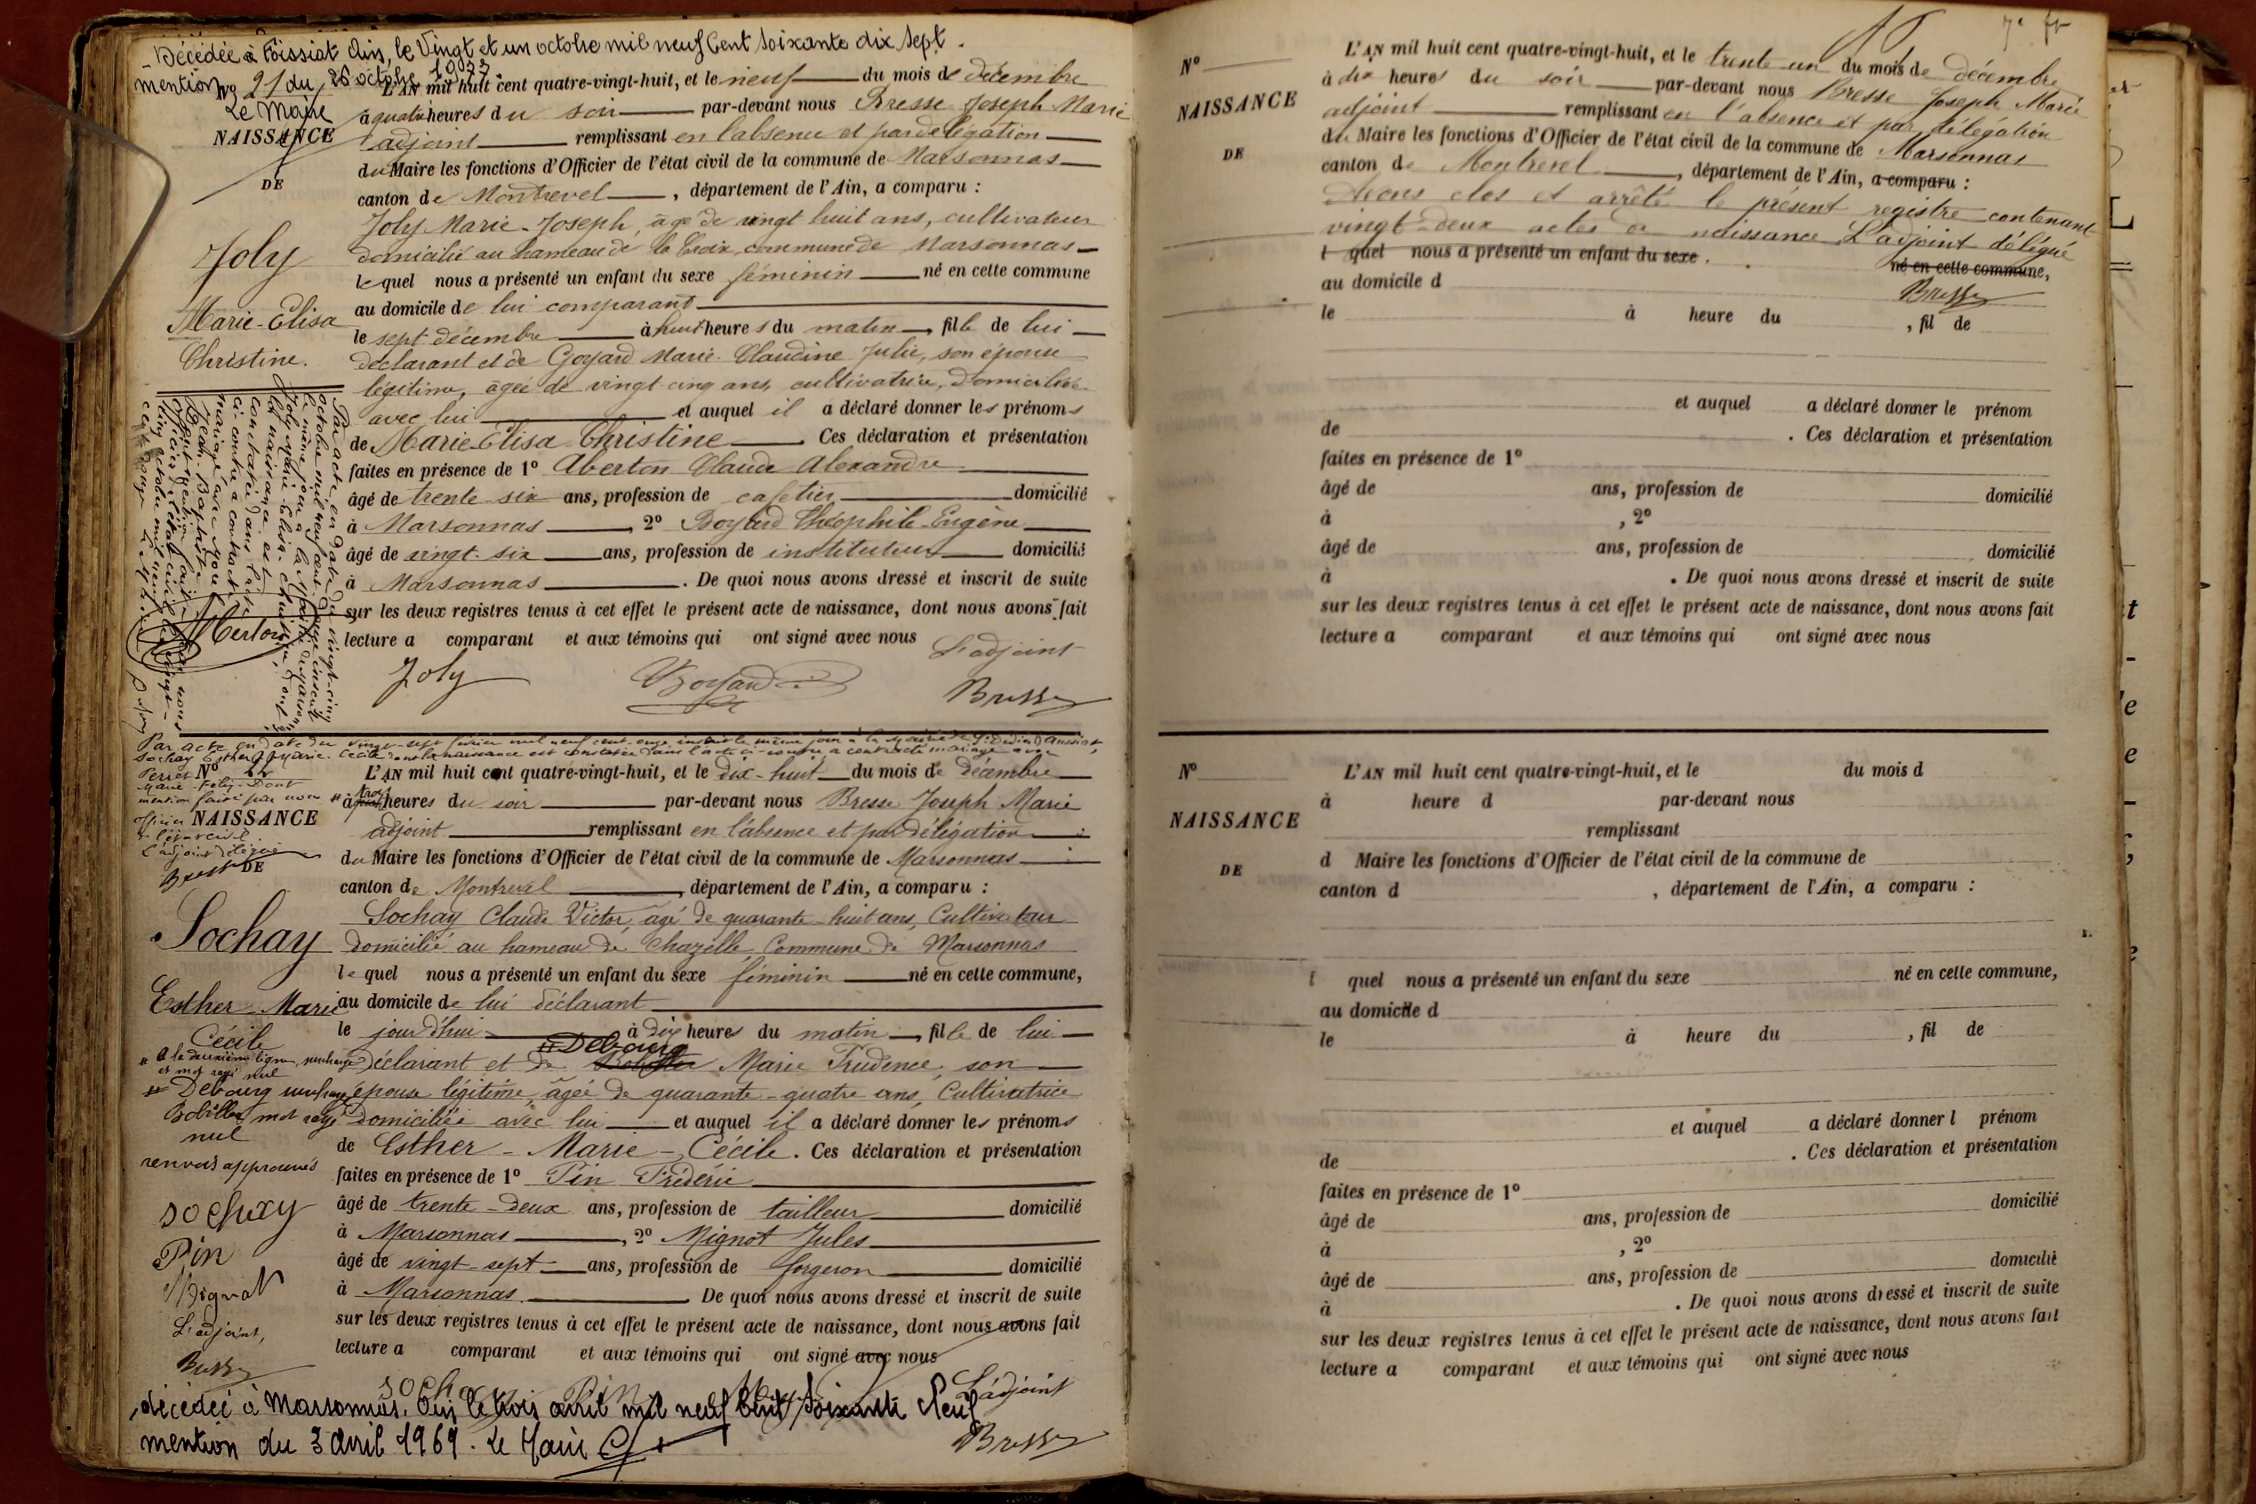 Décédée à Foissiat Ain, le Vingt et un octobre mil neuf Cent soixante dix sept.
mention no 21 du 26 octobre 1977
Le Maire
NAISSANCE
DE
Joly
Marie-Elisa
Christine.
L'AN mil huit cent quatre-vingt-huit, et le neuf du mois de décembre
à quatre heures du soir par-devant nous Bresse Joseph Marie
adjoint remplissant en l'absence et par délégation
du Maire les fonctions d'Officier de l'état civil de la commune de Marsonnas
canton de Montrevel, département de l'Ain, a comparu :
Joly Marie-Joseph, âgé de vingt huit ans, cultivateur
domicilié au hameau de la Croix, commune de Marsonnas
lequel nous a présenté un enfant du sexe féminin né en cette commune
au domicile de lui comparant
le sept décembre à huit heures du matin, fille de lui
déclarant et de Goyard Marie-Claudine Julie, son épouse
légitime, âgée de vingt-cinq ans, cultivatrice, domiciliée
avec lui et auquel il a déclaré donner les prénoms
de Marie Elisa Christine. Ces déclaration et présentation
faites en présence de 1º Aberton Claude Alexandre
âgé de trente six ans, profession de cafetier domicilié
à Marsonnas, 2º Boyard Théophile-Eugène
âgé de vingt-six ans, profession de instituteur domicilié
à Marsonnas. De quoi nous avons dressé et inscrit de suite
sur les deux registres tenus à cet effet le présent acte de naissance, dont nous avons fait
lecture a comparant et aux témoins qui ont signé avec nous
L'adjoint
Aberton
Joly
Boyard
Bresse
Par acte en date du vingt-cinq
octobre mil neuf cent
le même jour à la Mairie de
Joly Marie-Elisa-Christine, dont
la naissance est
constatée dans l'acte
ci-contre a contracté
mariage avec
Jean-Baptiste
Par acte en date du vingt-sept février mil neuf cent onze inscrit le même jour à la Mairie de St Didier d'Aussiat,
Sochay Esther Marie Cécile dont la naissance est constatée dans l'acte ci-contre a contracté mariage avec
Perret
Marie-Félix-Dont
mention faite par nous
officier
de l'état civil
L'adjoint délégué
Bresse
Nº 22
NAISSANCE
DE
Sochay
Esther Marie
Cécile
L'AN mil huit cent quatre-vingt-huit, et le dix-huit du mois de décembre
à trois heures du soir par-devant nous Bresse Joseph Marie
adjoint remplissant en l'absence et par délégation
du Maire les fonctions d'Officier de l'état civil de la commune de Marsonnas
canton de Montrevel, département de l'Ain, a comparu :
Sochay Claude Victor, âgé de quarante-huit ans, Cultivateur
domicilié au hameau de Chazelle, Commune de Marsonnas
lequel nous a présenté un enfant du sexe féminin né en cette commune,
au domicile de lui déclarant
le jour d'hui à dix heures du matin, fille de lui
Debourg
déclarant et de Marie Prudence, son
épouse légitime, âgée de quarante-quatre ans, Cultivatrice
domiciliée avec lui et auquel il a déclaré donner les prénoms
de Esther-Marie-Cécile. Ces déclaration et présentation
faites en présence de 1º Pin Frédéric
âgé de trente-deux ans, profession de tailleur domicilié
à Marsonnas, 2º Mignot Jules
âgé de vingt-sept ans, profession de forgeron domicilié
à Marsonnas. De quoi nous avons dressé et inscrit de suite
sur les deux registres tenus à cet effet le présent acte de naissance, dont nous avons fait
lecture a comparant et aux témoins qui ont signé avec nous
à la deuxième ligne, surcharge
et mot rayé nul
Debourg surcharge
mot rayé
nul
renvois approuvés
sochay
Pin
Mignot
L'adjoint,
Bresse
sochay Pin
L'adjoint
Bresse
décédée à Marsonnas, Ain le trois avril mil neuf Cent soixante Neuf
mention du 3 Avril 1969. Le Maire
Nº
NAISSANCE
DE
L'AN mil huit cent quatre-vingt-huit, et le trente un du mois de décembre
à dix heures du soir par-devant nous Bresse Joseph Marie
adjoint remplissant en l'absence et par délégation
du Maire les fonctions d'Officier de l'état civil de la commune de Marsonnas
canton de Montrevel, département de l'Ain, a comparu :
Avons clos et arrêté le présent registre contenant
vingt-deux actes de naissance L'adjoint délégué
l quel nous a présenté un enfant du sexe né en cette commune,
au domicile d
Bresse
le à heure du , fil de
et auquel a déclaré donner le prénom
de . Ces déclaration et présentation
faites en présence de 1º
âgé de ans, profession de domicilié
à , 2º
âgé de ans, profession de domicilié
à . De quoi nous avons dressé et inscrit de suite
sur les deux registres tenus à cet effet le présent acte de naissance, dont nous avons fait
lecture a comparant et aux témoins qui ont signé avec nous
Nº
NAISSANCE
DE
L'AN mil huit cent quatre-vingt-huit, et le du mois d
à heure d par-devant nous
remplissant
d Maire les fonctions d'Officier de l'état civil de la commune de
canton d , département de l'Ain, a comparu :
l quel nous a présenté un enfant du sexe né en cette commune,
au domicile d
le à heure du , fil de
et auquel a déclaré donner l prénom
de . Ces déclaration et présentation
faites en présence de 1º
âgé de ans, profession de domicilié
à , 2º
âgé de ans, profession de domicilié
à . De quoi nous avons dressé et inscrit de suite
sur les deux registres tenus à cet effet le présent acte de naissance, dont nous avons fait
lecture a comparant et aux témoins qui ont signé avec nous